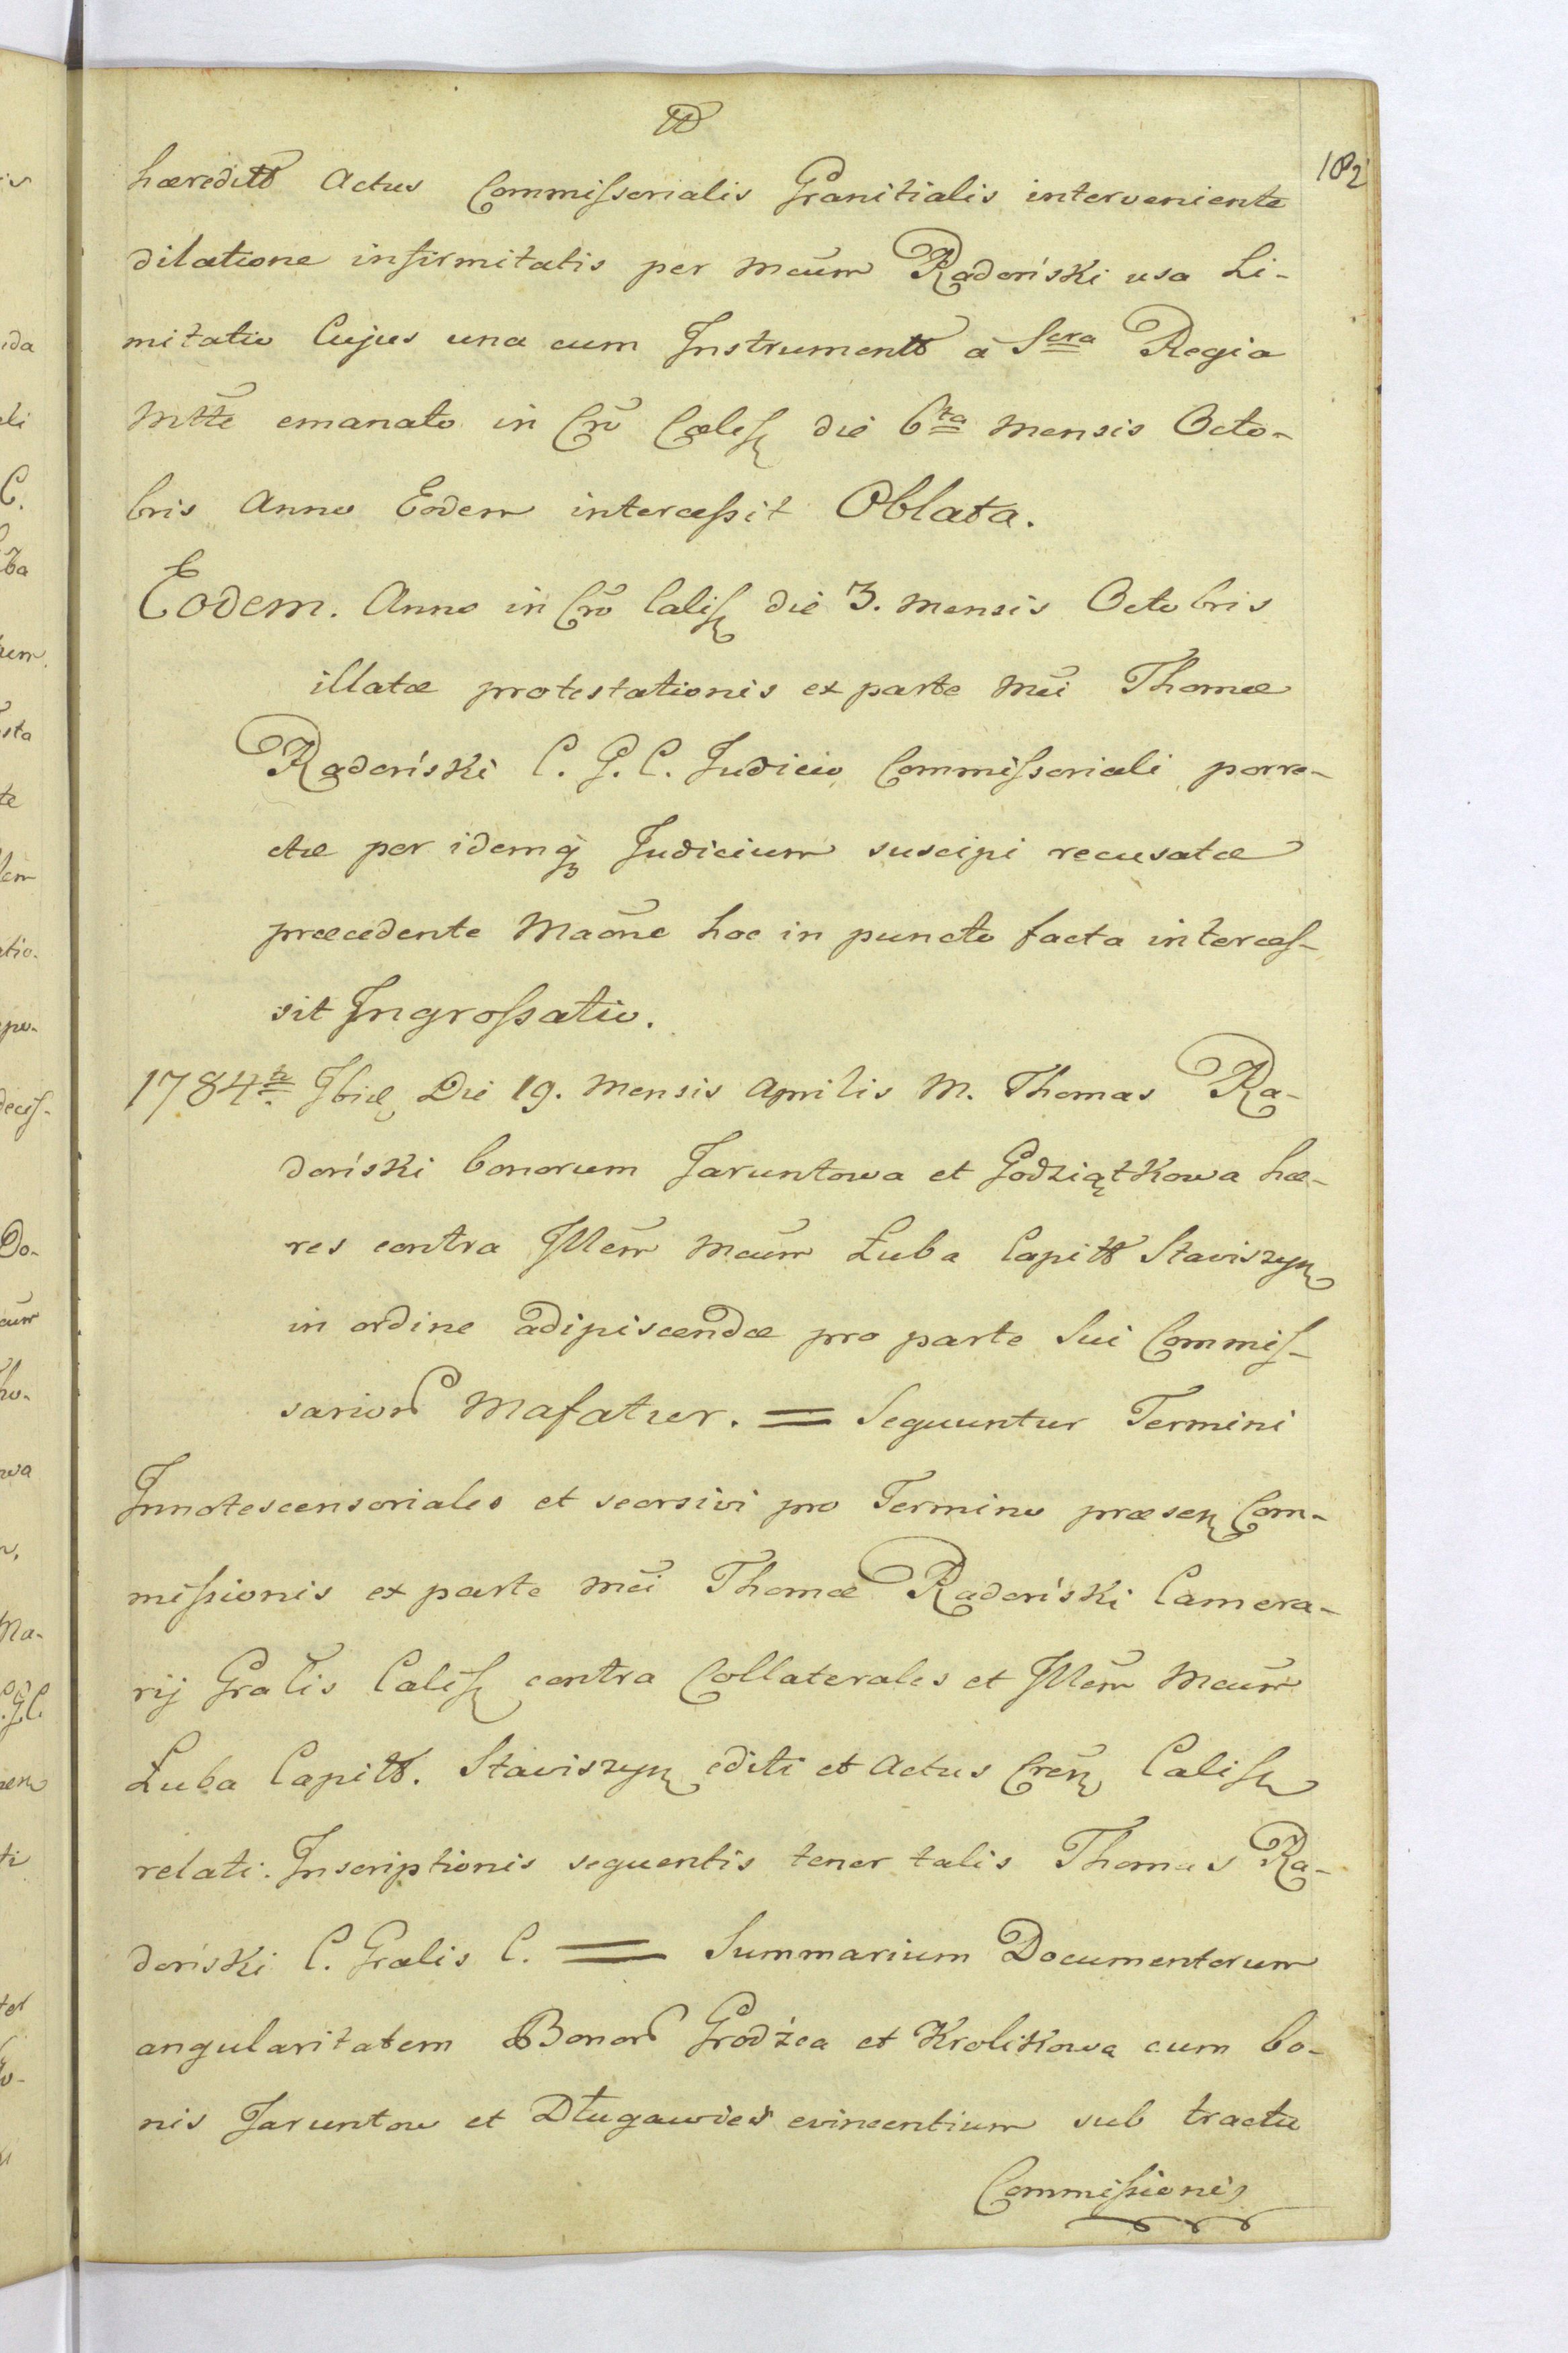 182
hæreditt Actus Commissorialis Granitialis interveniente
dilatione infirmitatis per Mcum̃ Radoński usa Li-
mitatio Cujus una cum Instrumentt â Scra Regia
Mtte emanato in Cro Calisſ die 6ta Mensis Octo-
bris Anno Eodem intercessit Oblata.
Eodem. Anno in Cro Calisſ die 3. Mensis Octobris
illatæ protestationis ex parte Mci Thomæ
Radoński C. G. C. Judicio Commissoriali porre-
ctæ per idemq Judicium suscipi recusatæ
præcedente Maõne hoc in puncto facta interces-
sit Ingrossatio.
1784to Ibid Die 19. Mensis Aprilis M. Thomas Ra-
doński bonorum Jaruntowa et Godziątkowa hæ-
res contra Illem̃ Mcum̃ Łuba Capitt Stawiszyn
in ordine adipiscendæ pro parte Sui Commis-
sarior Mafatur. = Sequuntur Termini
Innotescensoriales et seorsivi pro Termino præsen Com-
missionis ex parte Mci Thomæ Radoński Camera-
rij Gralis Calisſ contra Collaterales et Illem̃ Mcum̃
Łuba Capitt. Stawiszyn editi et Actus Cren̄ Calisſ
relati. Inscriptionis sequentis tenor talis Thomas Ra-
doński C. Gralis C. = Summarium Documentorum
angularitatem Bonor Grodźca et Krolikowa cum bo-
nis Jaruntow et Długawieś evincentium sub tractu
Commissionis